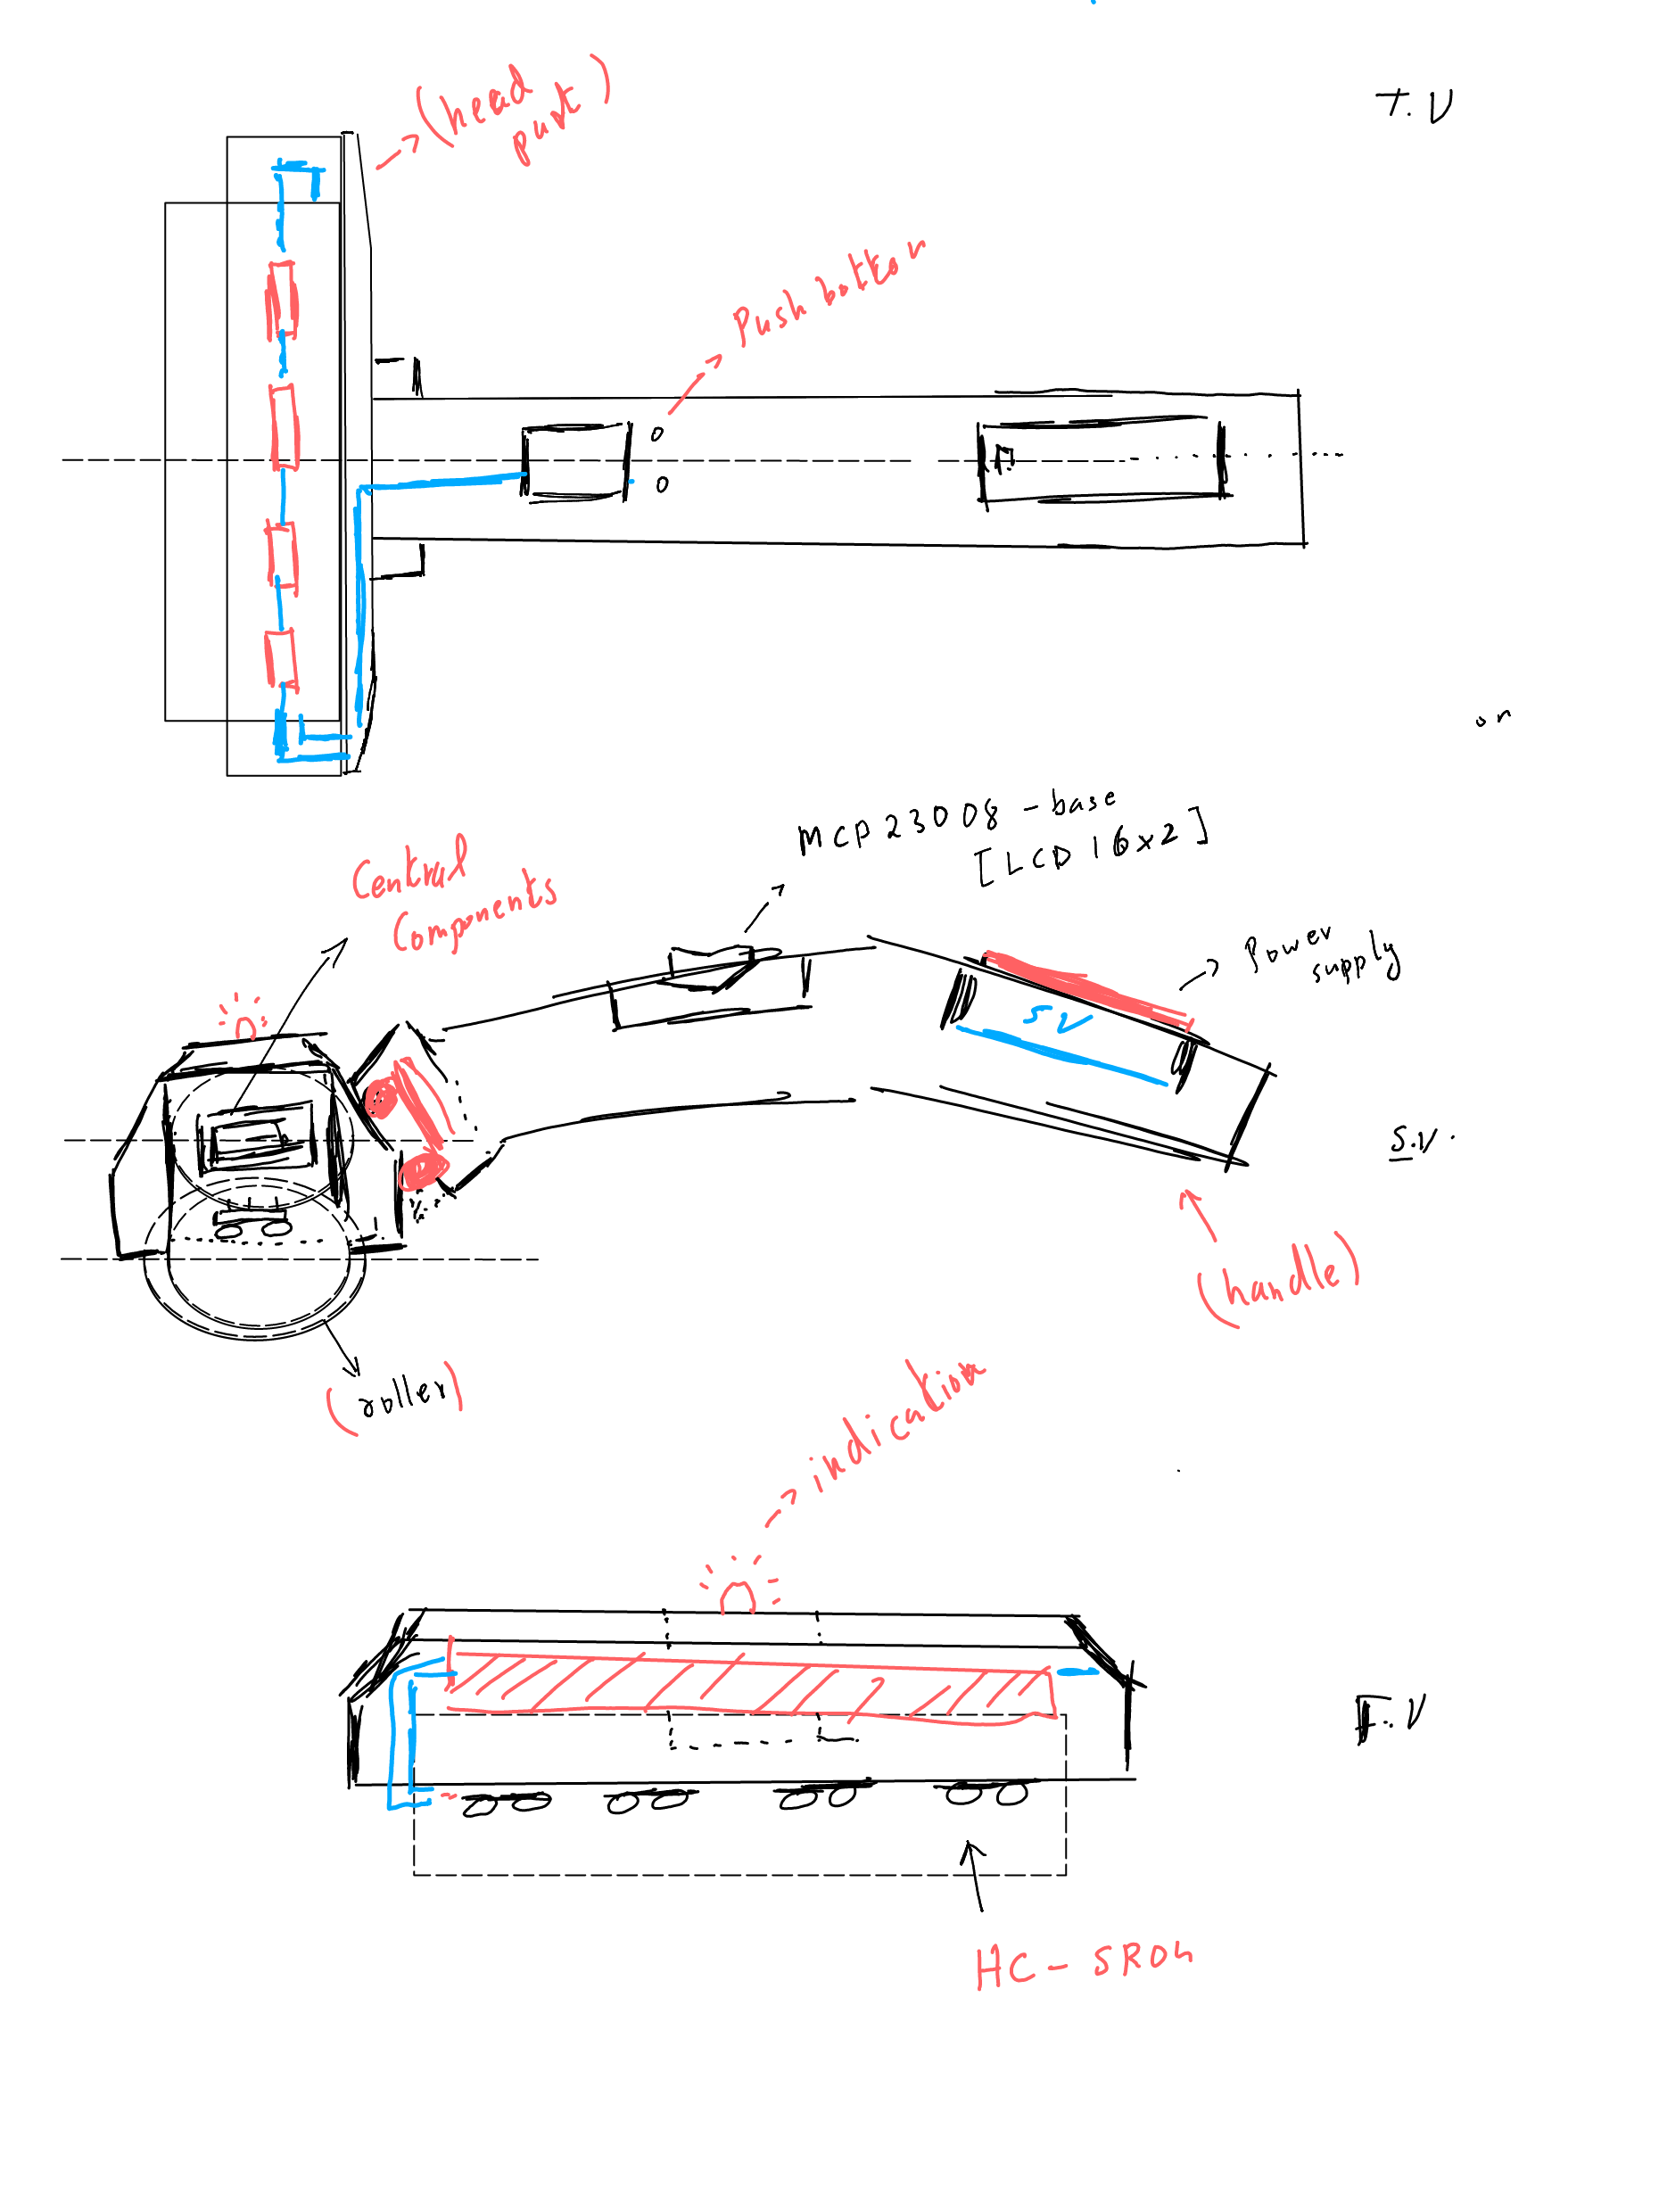 T.V
(head
part)
Push botton
0
0
on
MCP23008 - base
[LCD 16x2]
Central
Components
Power
supply
5V
S.V.
(handle)
(roller)
indication
F.V
HC - SR04